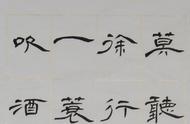 莫聽
徐行
一蓑
吹酒